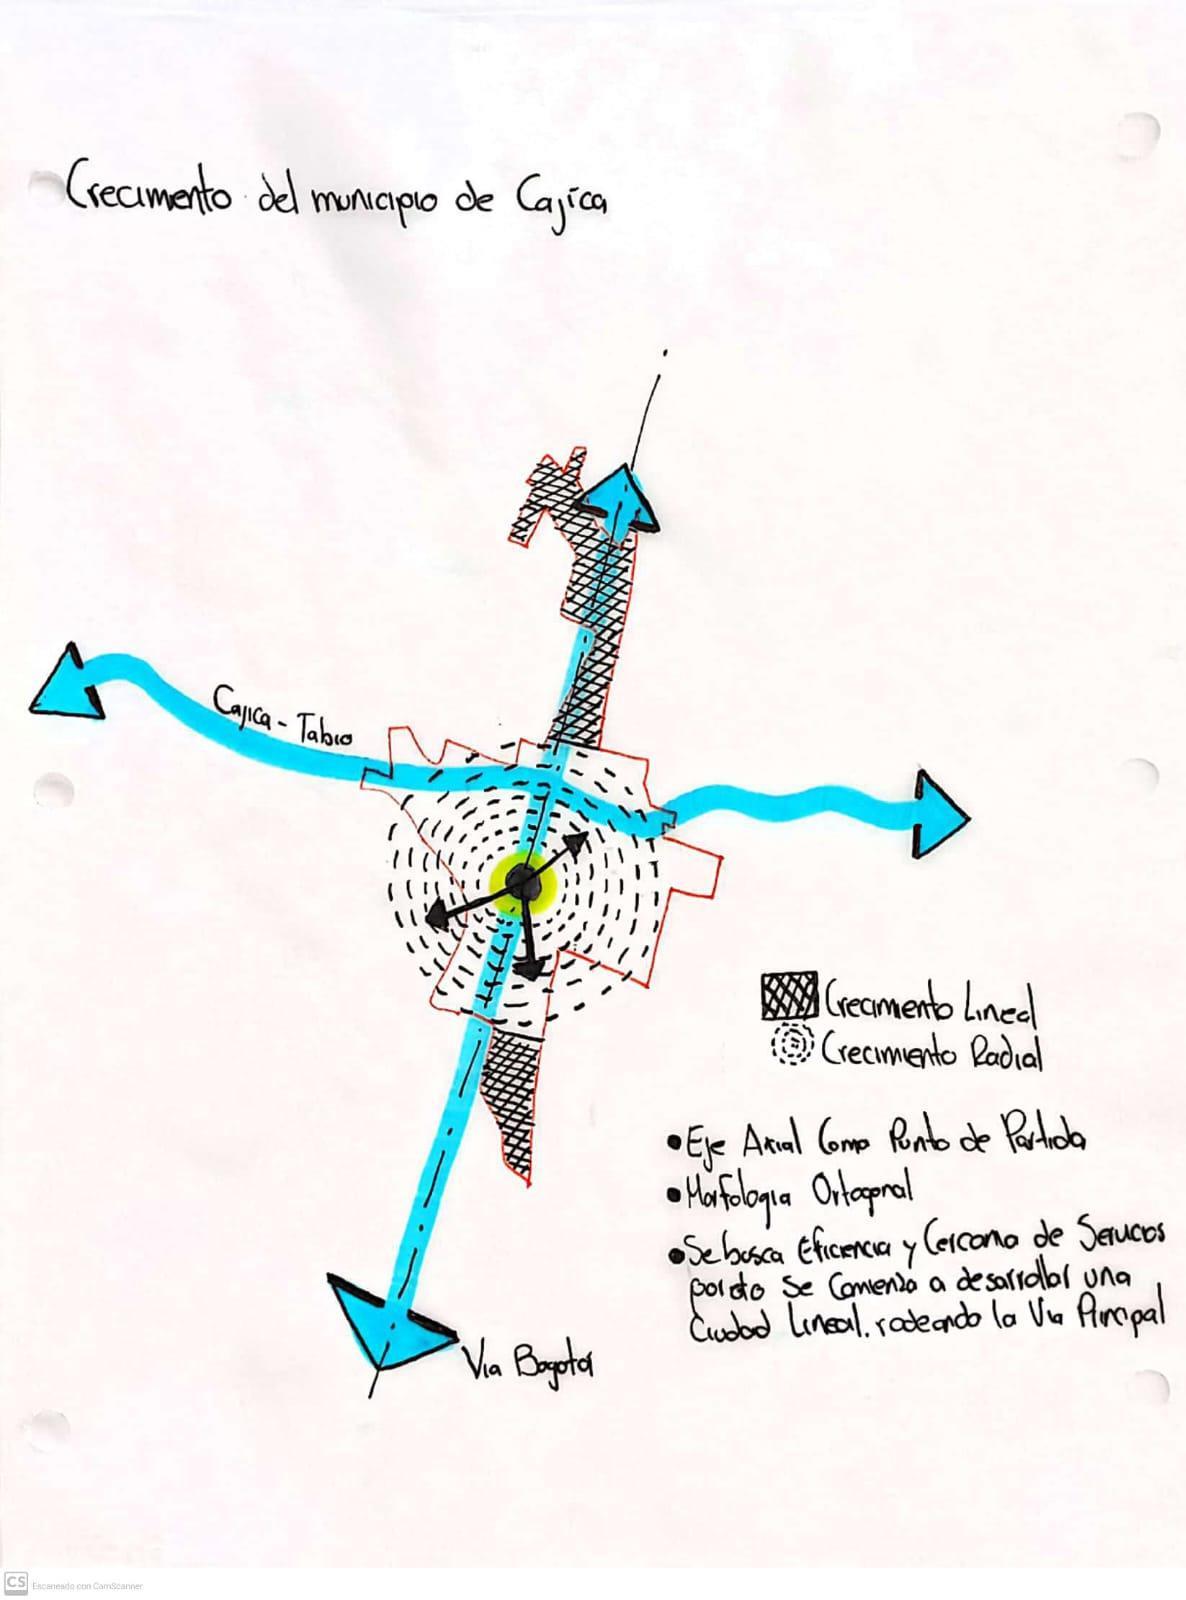 Crecimento del municipio de Cajíca
Cajica - Tabio
Crecimento Lineal
Crecimiento Radial
• Eje Axial Como Punto de Partida
• Morfologia Ortogonal
• Se busca Eficiencia y Cercania de Servicios
por eto se Comienza a desarrollar una
Ciudad Lineal, rodeando la Via Principal
Via Bogotá
CS Escaneado con CamScanner